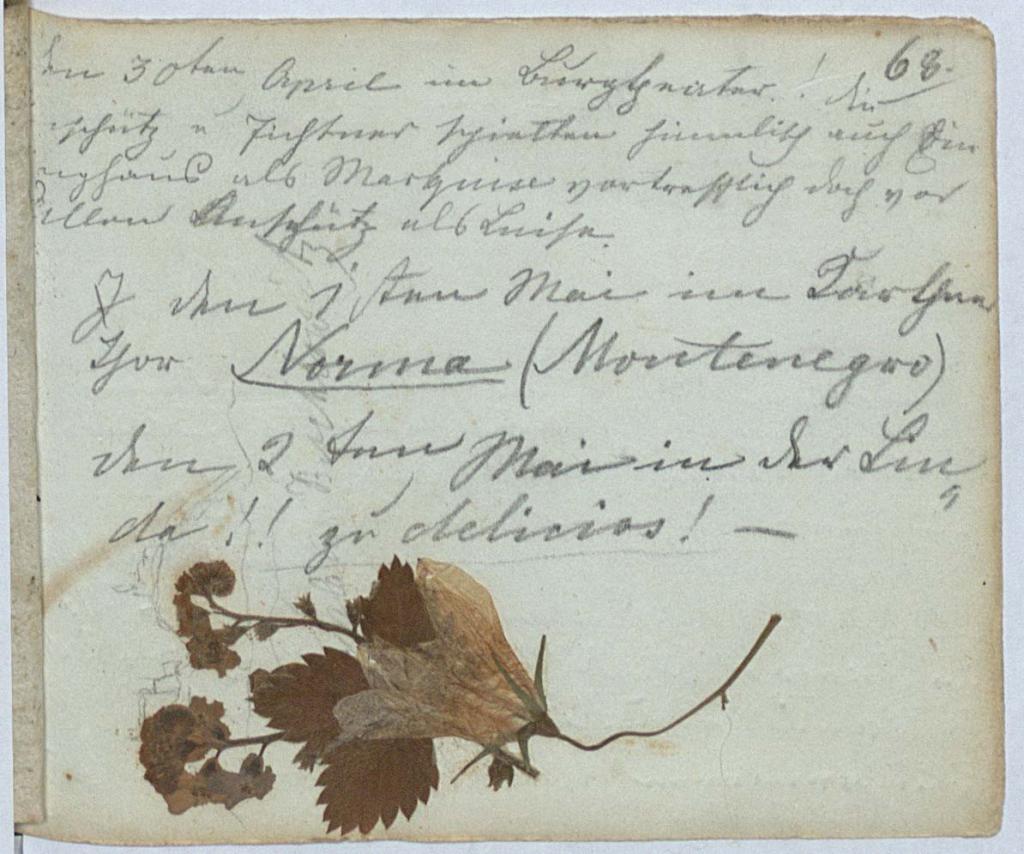 68.
den 30ten April im Burgtheater! die
schütz u Fichtner spielten himmlisch auch die
nghaus als Marquise vortrefflich doch vor
allen Anschütz als Luise.
den 1sten Mai im Kärthner
thor Norma (Montenegro)
den 2ten Mai in der Lin„
da!! zu delicios! —